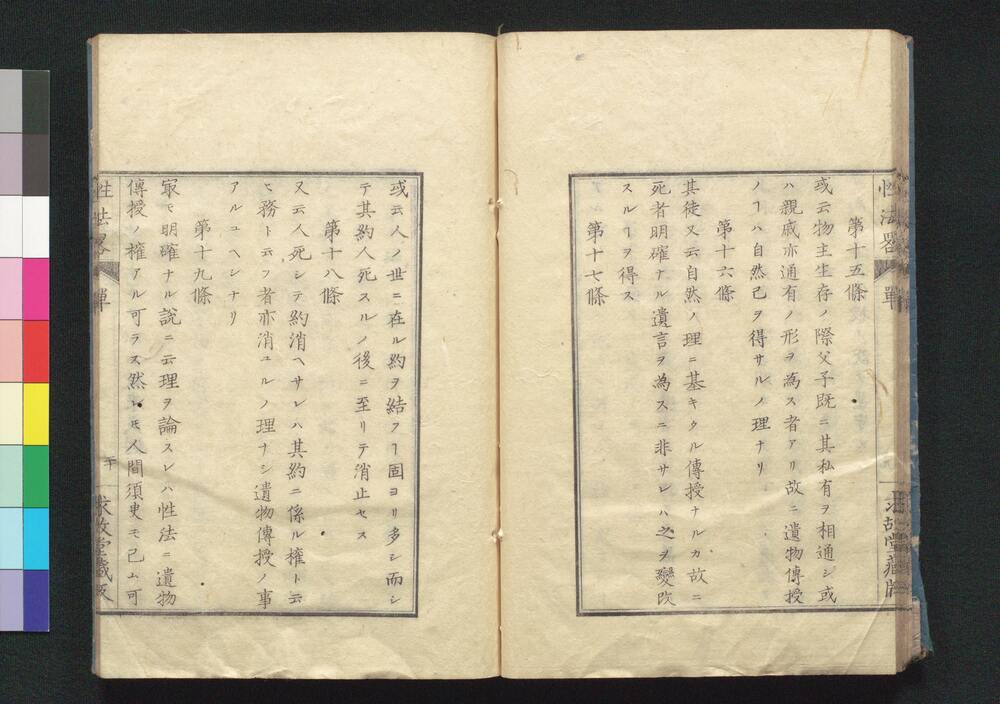 性法畧
單
求故堂藏版
第十五條
或云物主生存ノ際父子既ニ其私有ヲ相通シ或
ハ親戚亦通有ノ形ヲ為ス者アリ故ニ遺物傳授
ノヿハ自然已ヲ得サルノ理ナリ
第十六條
其徒又云自然ノ理ニ基キタル傳授ナルカ故ニ
死者明確ナル遺言ヲ為スニ非サレハ之ヲ變改
スルヿヲ得ス
第十七條
或云人ノ世ニ在ル約ヲ結フヿ固ヨリ多シ而シ
テ其約人死スルノ後ニ至リテ消止セス
第十八條
又云人死シテ約消ヘサレハ其約ニ係ル權ト云
ヒ務ト云フ者亦消ユルノ理ナシ遺物傳授ノ事
アルユヘンナリ
第十九條
㝡モ明確ナル説ニ云理ヲ論スレハ性法ニ遺物
傳授ノ權アル可ラス然レモ人間須臾モ已ム可
性法畧
單
二十
求故堂藏版